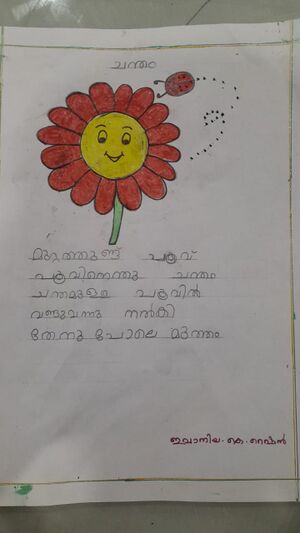 ചന്തം
മുറ്റത്തുണ്ട് പൂവ്
പൂവിനെന്തു ചന്തം
ചന്തമുള്ള പൂവിൽ
വണ്ടുവന്നു നൽകി
തേനു പോലെ മുത്തം
ഇവാനിയ. കെ. റെഷിൻ